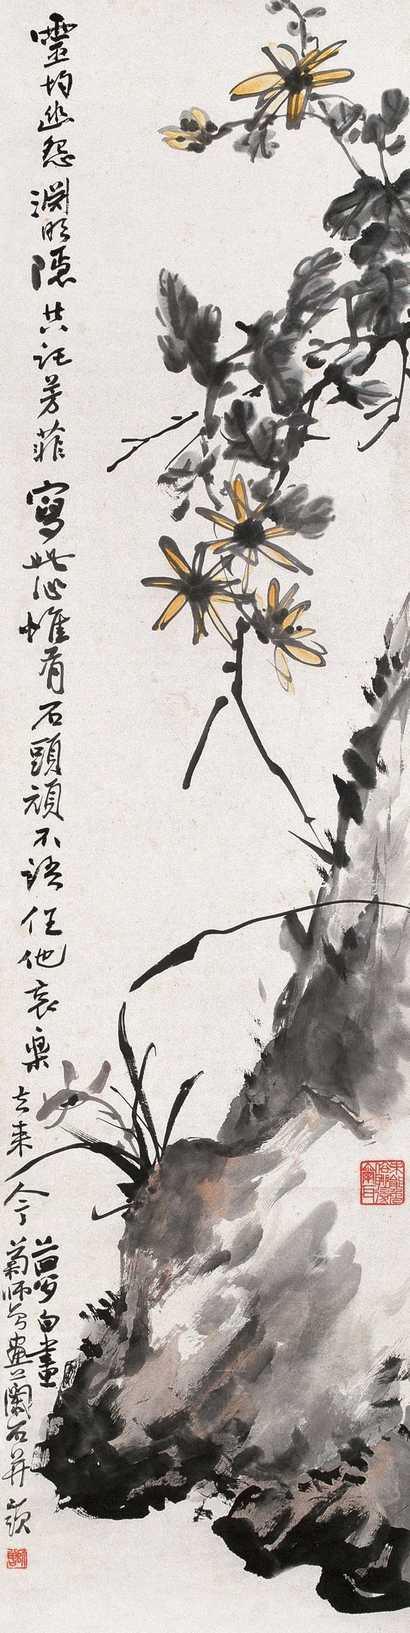 靈均幽怨淵明隱共託芳菲寫此心惟有石頭頑不語任他哀樂去来今
夢白畫
菊師曾畫蘭石并題